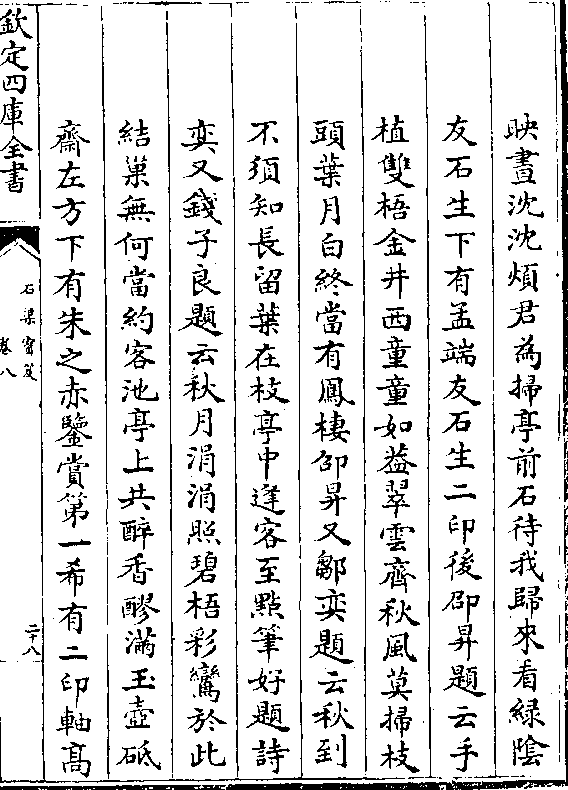 映晝沈沈煩君為掃亭前石待我歸來看緑陰
友石生下有孟端友石生二印後邵昇題云手
植雙梧金井西童童如葢翠雲齊秋風莫掃枝
頭葉月白終當有鳳棲邵昇又鄒奕題云秋到
不須知長留葉在枝亭中逢客至㸃筆好題詩
奕又錢子良題云秋月涓涓照碧梧彩鸞於此
結巢無何當約客池亭上共醉香醪滿玉壺砥
齋左方下有朱之赤鑒賞第一希有二印軸髙
欽定四庫全書
石渠寳笈
卷八
二十八